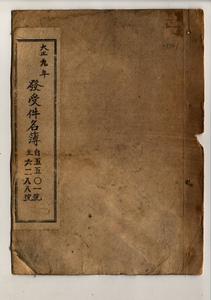 大正九年
發受件名簿
自五五〇一號
至六二八八號